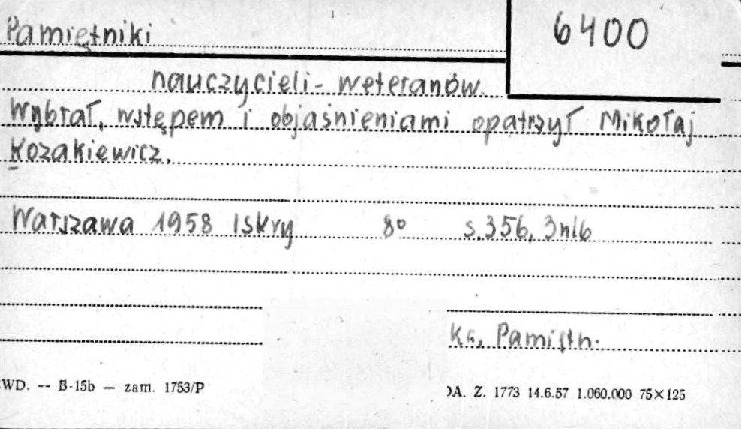 Pamiętniki
6400
nauczycieli-weteranów.
Wybrał, wstępem i objaśnieniami opatrzył Mikołaj
Kozakiewicz.
Warszawa 1958 Iskry 8° s.356, 3nlb
Ks. Pamiętn.
WD. -- B-15b — zam. 1753/P
A. Z. 1773 14.6.57 1.060.000 75×125